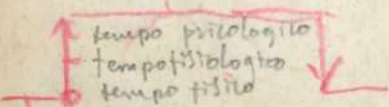 tempo psicologico
tempo fisiologico
tempo fisico